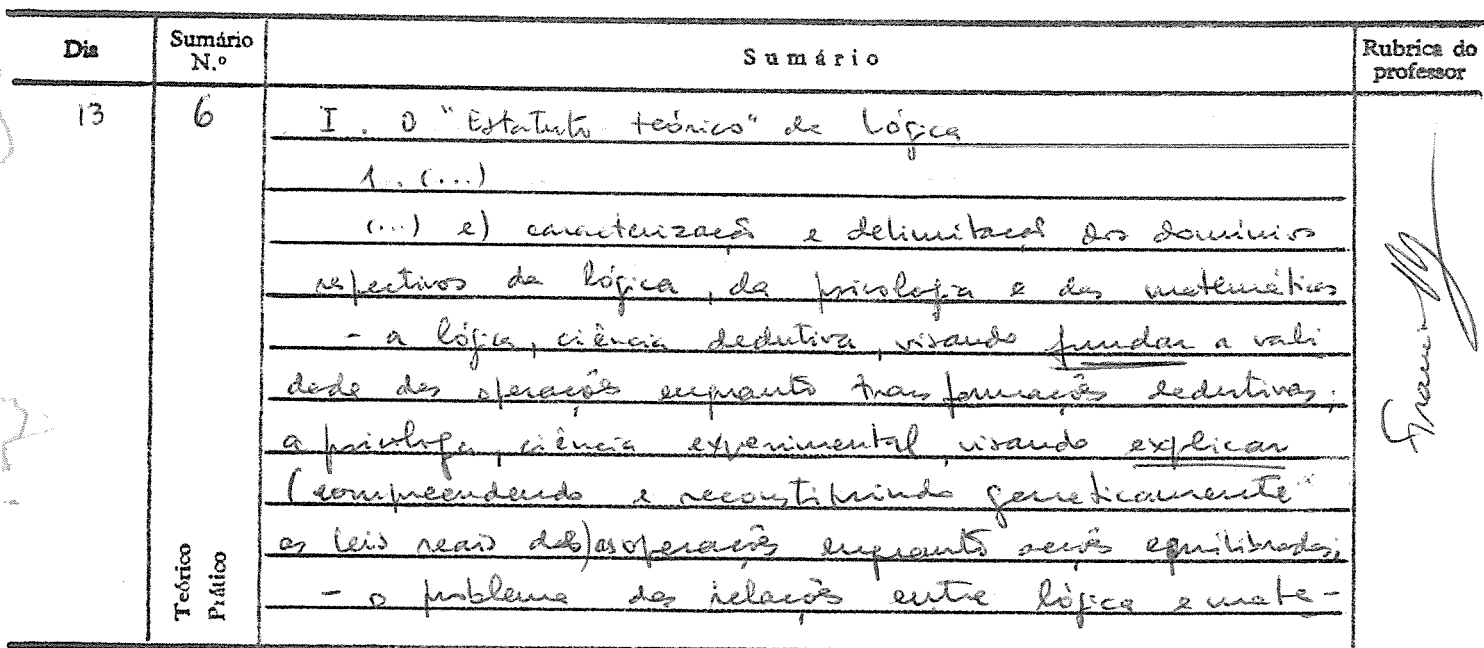 Dia Sumário N.º Sumário Rubrica do professor
13 6 I. O "Estatuto teórico" da lógica
1. (...)
(...) e) caracterização e delimitação dos domínios
respectivos da lógica, da psicologia e das matemáticas
- a lógica, ciência dedutiva, visando fundar a vali
dade das operações enquanto transformações dedutivas;
a psicologia, ciência experimental, visando explicar
(compreendendo e reconstituindo geneticamente
as leis reais das) as operações enquanto acções equilibradas;
- o problema das relações entre lógica e mate-
Teórico
Prático